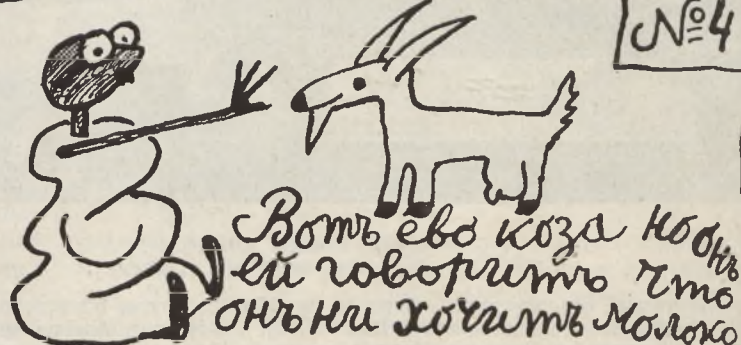 №4
Вотъ ево коза но онъ
ей говоритъ что
онъ ни хочитъ молоко